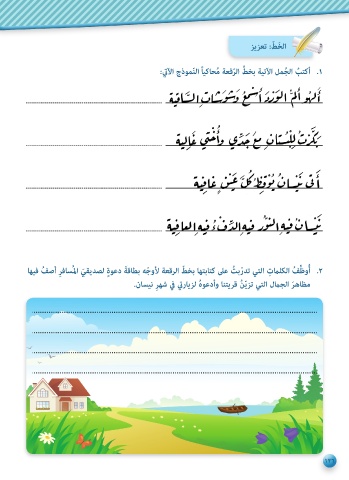 الخطّ: تعزيز
١. أكتبُ الجُمل الآتية بخطّ الرّقعة مُحاكيًا النّموذج الآتي:
ألهو ألمُّ الوَرْدَ أسْمعُ وَشْوَشاتِ السّاقِيَة
بَكَّرْتُ لِلْبُسْتانِ مَعْ جَدّي وأُخْتي غَالِية
أَتى نَيْسانُ يُوقِظُ كُلَّ عَيْنٍ غافِيَة
نَيْسانُ فيهِ النّورُ فيهِ الدِّفْءُ فيهِ العافِيَة
٢. أوظّفُ الكلماتِ التي تدرّبتُ على كتابتها بخطّ الرقعة لأوجّه بطاقةَ دعوةٍ لصديقيَ المُسافرِ أصفُ فيها
مظاهرَ الجمال التي تزيّنُ قريتنا وأدعوهُ لزيارتي في شهرِ نيسان.